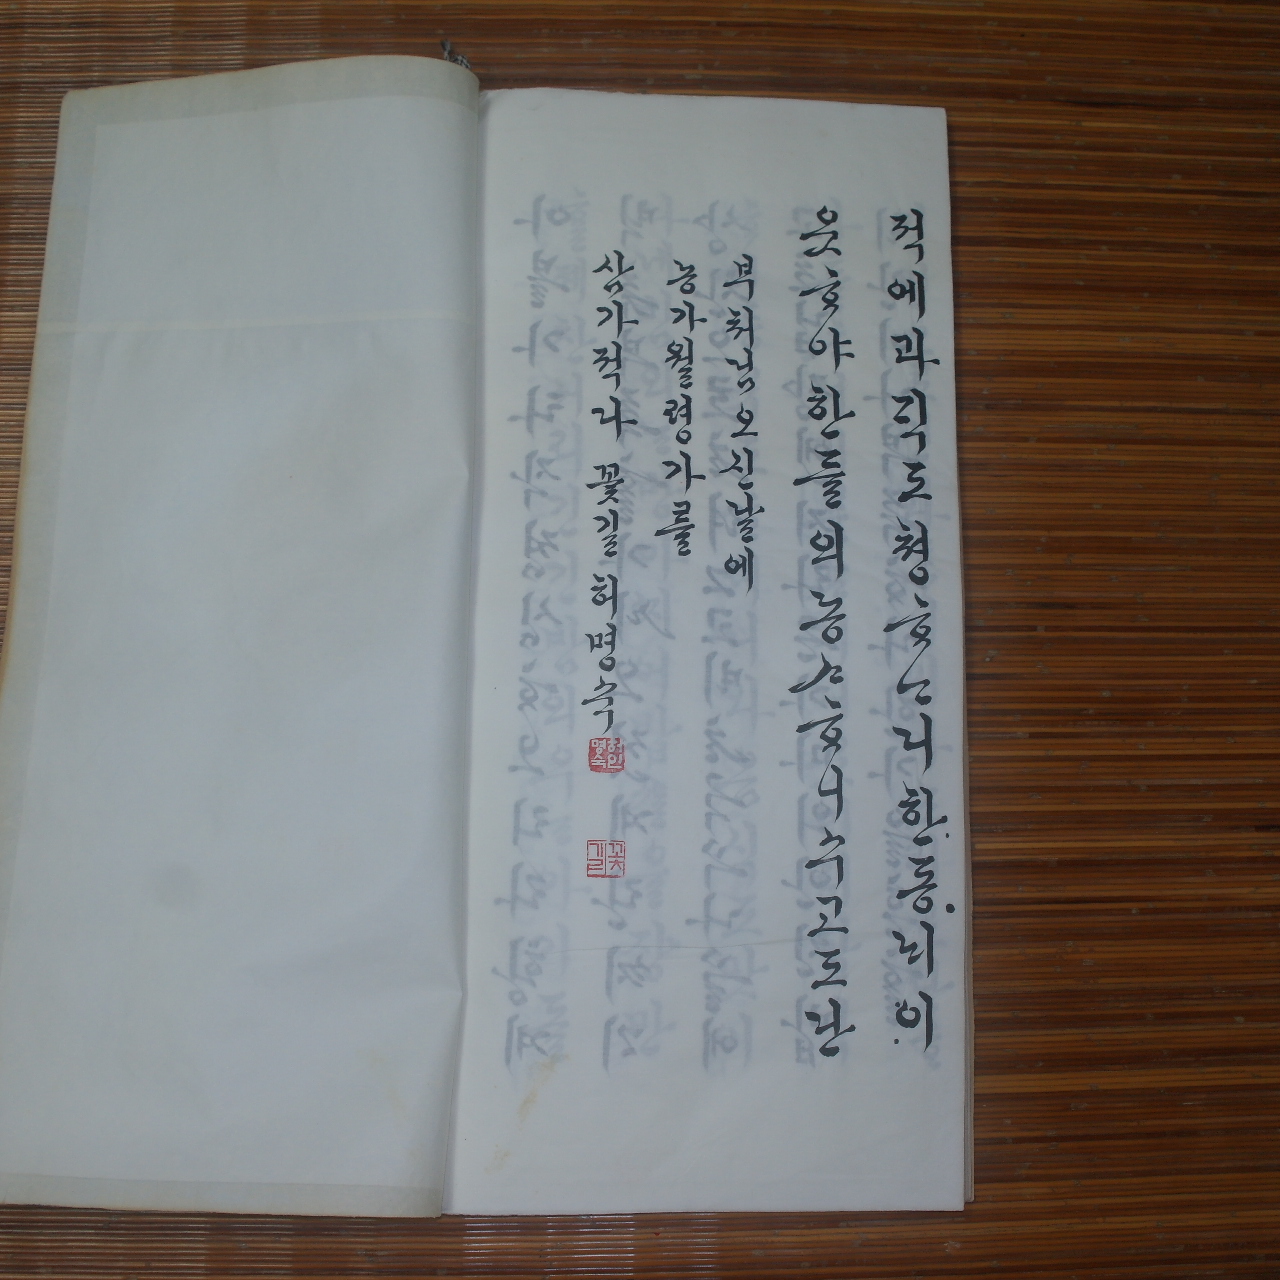 적에과긱도쳥ᄒᆞᄂᆞ니한동ᄂᆡ이
웃ᄒᆞ야한들의농ᄉᆞᄒᆞ니수고도난
부처님오신날에
농가월령가를
삼가적다 꽃길 허명숙
허인명숙
꽃길